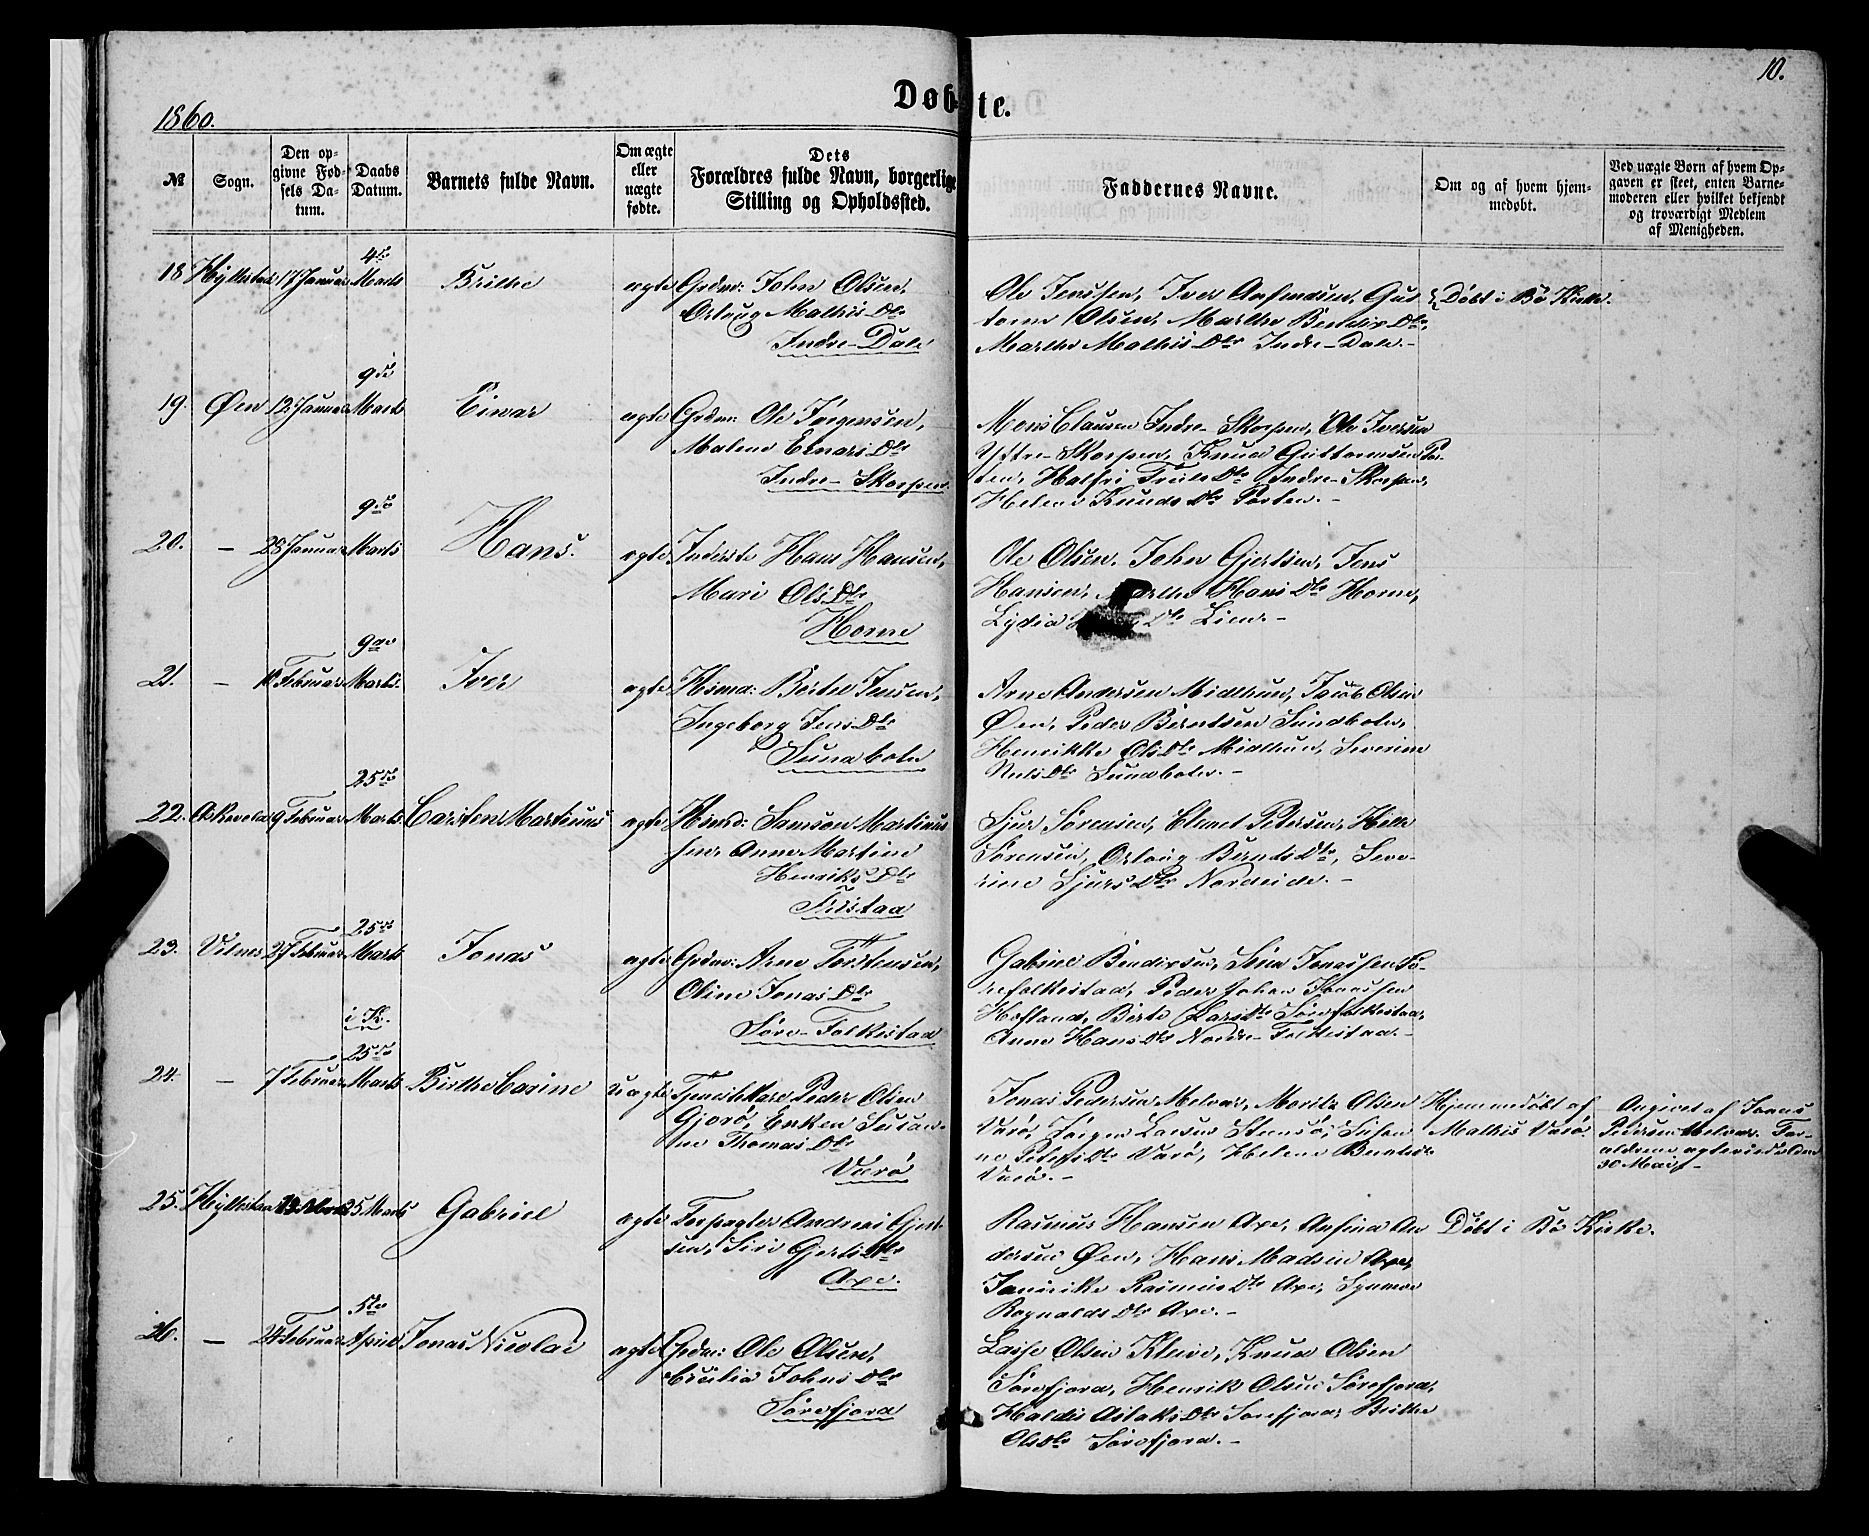 10.
1860.
Døbte.
№
Sogn.
Den op-
givne Fød-
sels Da-
tum.
Daabs
Datum.
Barnets fulde Navn.
Om ægte
eller
uægte
fødte.
Dets
Forældres fulde Navn, borgerlige
Stilling og Opholdssted.
Faddernes Navne.
Om og af hvem hjem-
medøbt.
Ved uægte Børn af hvem Op-
gaven er skeet, enten Barne-
moderen eller hvilket bekjendt
og troværdigt Medlem
af Menigheden.
4de
18 Hyllestad 17 Januar Marts Brithe ægte Grdm: John Olsen,
Orloug Mathis Dtr
Indre-Dale
Ole Jenssen, Iver Anfindsen, Gut
torm Olsen, Marthe Bendix Dtr,
Marthe Mathis Dtr Indre-Dale.-
Døbt i Bø Kirke.
9de
19. Øen 12 Januar Marts Eivar ægte Grdm: Ole Jørgensen,
Malene Einars Dtr
Indre-Skorpen
Mons Clausen Indre-Skorpen, Ole Iversen
Yttre-Skorpen, Knud Guttormsen Por-
ten, Indre-Skorpen,
Helene Knuds Dtr Porten.-
9de
20. — 28 Januar Marts Hans. ægte Inderste Hans Hansen,
Mari Ols Dtr
Horne
Ole Olsen, John Gjertsen, Jens
Hansen, Marthe Hans Dtr Horne,
Lydia Dtr Lien.-
9de
21. — Februar Marts. Iver ægte Hsmd: Bertel Jensen,
Ingeborg Jens Dtr
Sundbolen
Arne Andersen Midttun, Jacob Olsen
Øen, Peder Berntsen Sundbolen,
Henrikke Ols Dtr Midttun, Severine
Nils Dtr Sundbolen.-
25de
22. Askevold 9 Februar Marts Carsten Martinus ægte Hsmd: Samson Martinus
sen Anne Martine
Henriks Dtr
Sjur Sørensen, Clmet Petersen, Helle
Sørensen, Orloug Bernts Dtr, Seve-
rine Sjurs Dtr Nordeide.-
25de
23. Vilnes 27 Februar Marts Jonas ægte Grdm: Arne Torstensen,
Oline Jonas Dtr
Søre-Folkestad
Gabriel Bendixsen, Jonassen Sø-
refolkestad, Peder Johan Jonassen
Hofland, Birte Lars Dtr Sørefolkestad,
Anne Hans Dtr Nordre-Folkestad.-
i K.
25de
24. — 7 Februar Marts Birthe Carine uægte Tjenestekarl Peder Olsen
Gjorø, Enken Susan-
ne Thomas Dtr
Værø
Jonas Pedersen Melvær, Moritz Olsen
Værø, Jørgen Larsen Steensø, Susan
ne Peters Dtr Værø, Helene Bernts Dtr
Værø.-
Hjemmedøbt af
Mathis Værø.
Angivet af Jonas
Pedersen Melvær. For-
ældrene ægteviedes den
30 Mai
25. Hyllestad 25 Marts Gabriel ægte Forpagter Andreas Gjert
sen, Siri Gjerts Dtr
Axe.
Rasmus Hansen Axe, Anfind An
dersen Øen, Hans Madsen Axe,
Jannike Rasmus Dtr Axe, Synneve
Rognalds Dtr Axe.-
Døbt i Bø Kirke.
5te
26. — 24 Februar April Jonas Nicolai ægte Grdm: Ole Olsen,
Cecilia Johns Dtr
Sørefjord
Lasse Olsen Kleive, Knud Olsen
Sørefjord, Henrik Olsen Sørefjord,
Haldis Aslaks Dtr Sørefjord, Brithe
Ols Dtr Sørefjord.-